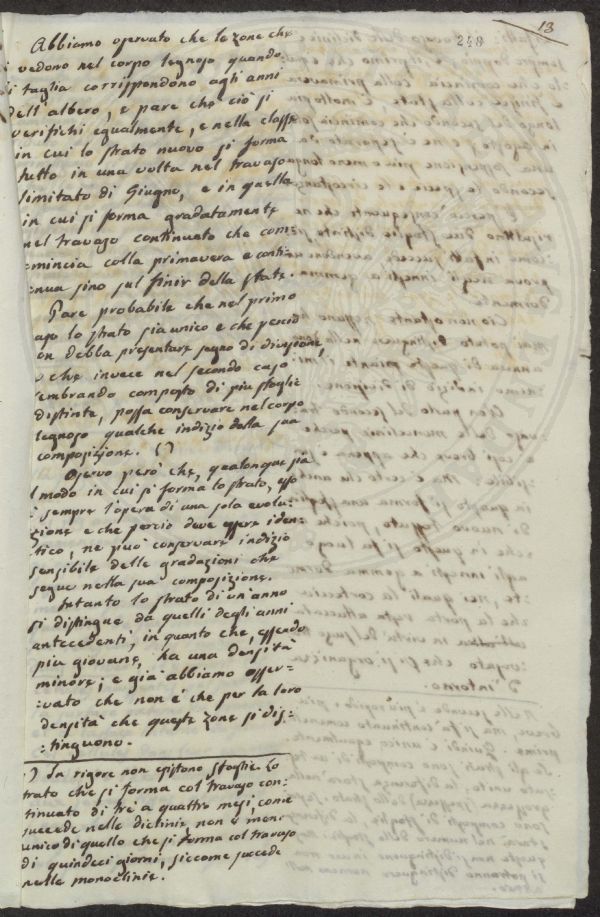 13
248
Abbiamo osservato che le zone che
si vedono nel corpo legnoso quando
si taglia corrispondono agli anni
dell'albero, e pare che ciò si
verifichi egualmente, e nella classe
in cui lo strato nuovo si forma
tutto in una volta nel travaso
limitato di Giugno, e in quella
in cui si forma gradatamente
nel travaso continuato che com=
=mincia colla primavera e conti=
=nua sino sul finir della state.
Pare probabile che nel primo
caso lo strato sia unico e che perciò
non debba presentare segno di divisione,
e che invece nel secondo caso
sembrando composto di più sfoglie
distinte, possa conservare nel corpo
legnoso qualche indizio dalla sua
composizione. (')
Osservo però che, qualonque sia
il modo in cui si forma lo strato, esso
è sempre l'opera di una sola evolu=
=zione e che perciò deve essere iden=
tico, ne può conservare indizio
sensibile delle gradazioni che
segue nella sua composizione.
Intanto lo strato di un'anno
si distingue da quelli degli anni
antecedenti, in quanto che, essendo
più giovane, ha una densità
minore; e già abbiamo osser=
=vato che non è che per la loro
densità che queste zone si dis=
=tinguono.
(') In rigore non esistono sfoglie. Lo
strato che si forma col travaso con=
tinuato di tre a quattro mesi, come
succede nelle diclinie non è meno
unico di quello che si forma col travaso
di quindeci giorni, siccome succede
nelle monoclinie.